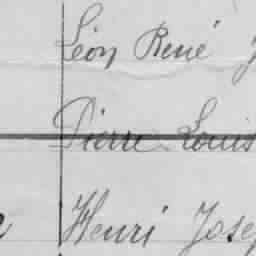 Léon René
Pierre Louis
Henri Jose